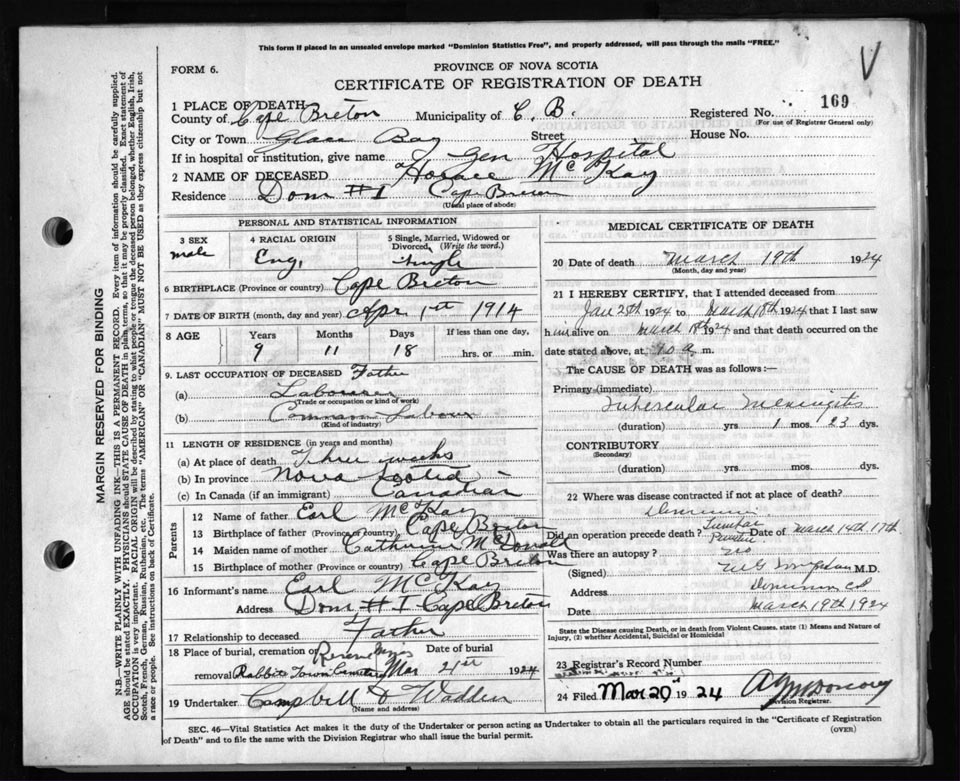 This form if placed in an unsealed envelope marked "Dominion Statistics Free", and properly addressed, will pass through the mails "FREE."
V
FORM 6.
PROVINCE OF NOVA SCOTIA
CERTIFICATE OF REGISTRATION OF DEATH
169
1 PLACE OF DEATH
County of Cape Breton Municipality of C, B. Registered No.
(For use of Registrar General only)
City or Town Glace Bay Street House No.
If in hospital or institution, give name Gen Hospital
2 NAME OF DECEASED Horace McKay
Residence Dom #1 Cape Breton
(Usual place of abode)
PERSONAL AND STATISTICAL INFORMATION
3 SEX 4 RACIAL ORIGIN 5 Single, Married, Widowed or Divorced, (Write the word.)
male Eng. single
6 BIRTHPLACE (Province or country) Cape Breton
7 DATE OF BIRTH (month, day and year) Apr. 1st 1914
8 AGE Years Months Days If less than one day,
9 11 18 hrs. or min.
9. LAST OCCUPATION OF DECEASED Father
(a) Labourer
(Trade or occupation or kind of work)
(b) Common Labour
(Kind of industry)
11 LENGTH OF RESIDENCE (in years and months)
(a) At place of death Three weeks
(b) In province Nova Scotia
(c) In Canada (if an immigrant) Canadian
Parents
12 Name of father Earl McKay
13 Birthplace of father (Province or country) Cape Breton
14 Maiden name of mother Catherine McDonald
15 Birthplace of mother (Province or country) Cape Breton
16 Informant's name Earl McKay
Address Dom #1 Cape Breton
17 Relationship to deceased Father
18 Place of burial, cremation or Date of burial
removal Reserve Mines Rabbit Town Cemetery Mar 21st 1924
19 Undertaker Campbell & Wadden
(Name and address)
MEDICAL CERTIFICATE OF DEATH
20 Date of death March 19th 1924
(Month, day and year)
21 I HEREBY CERTIFY, that I attended deceased from
Jan 25th 1924 to March 18th 1924 that I last saw
him alive on March 18th 1924 and that death occurred on the
date stated above, at 10 a m.
The CAUSE OF DEATH was as follows:—
Primary (immediate)
Tubercular Meningitis
(duration) yrs 1 mos. 23 dys.
CONTRIBUTORY
(Secondary)
(duration) yrs. mos. dys.
22 Where was disease contracted if not at place of death?
Dominion
Did an operation precede death? Lumbar Puncture Date of March 14th 17th
Was there an autopsy? no
(Signed) M.D.
Address Dominion CB
Date March 19th 1924
State the Disease causing Death, or in death from Violent Causes, state (1) Means and Nature of Injury, (2) whether Accidental, Suicidal or Homicidal
23 Registrar's Record Number
24 Filed Mar 20 1924
Division Registrar.
SEC. 46—Vital Statistics Act makes it the duty of the Undertaker or person acting as Undertaker to obtain all the particulars required in the "Certificate of Registration
of Death" and to file the same with the Division Registrar who shall issue the burial permit. (OVER)
MARGIN RESERVED FOR BINDING
N.B.—WRITE PLAINLY WITH UNFADING INK—THIS IS A PERMANENT RECORD. Every item of information should be carefully supplied.
AGE should be stated EXACTLY. PHYSICIANS should STATE CAUSE OF DEATH in plain terms, so that it may be properly classified. Exact statement of
OCCUPATION is very important. RACIAL ORIGIN will be described by stating to what people or tongue the deceased person belonged, whether English, Irish,
Scotch, French, German, Russian, Ruthenian, etc. The terms "AMERICAN" or "CANADIAN" MUST NOT BE USED as they express citizenship but not
a race or people. See instructions on back of Certificate.